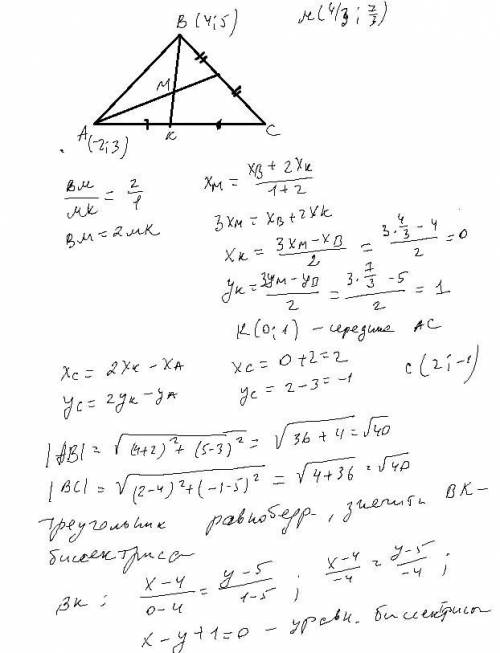 B (4;5)
M(4/3 ; 7/3)
M
A(-2;3)
K
C
BM/MK = 2/1
BM = 2MK
x_M = (x_B + 2x_K)/(1+2)
3x_M = x_B + 2x_K
x_K = (3x_M - x_B)/2 = (3·4/3 - 4)/2 = 0
y_K = (3y_M - y_B)/2 = (3·7/3 - 5)/2 = 1
K(0;1) - середина AC
x_C = 2x_K - x_A
x_C = 0+2 = 2
y_C = 2y_K - y_A
y_C = 2-3 = -1
C(2;-1)
|AB| = √((4+2)² + (5-3)²) = √(36+4) = √40
|BC| = √((2-4)² + (-1-5)²) = √(4+36) = √40
треугольник равнобедр, значит BK-
биссектриса
BK: (x-4)/(0-4) = (y-5)/(1-5); (x-4)/-4 = (y-5)/-4;
x-y+1=0 - уравн. биссектрисы